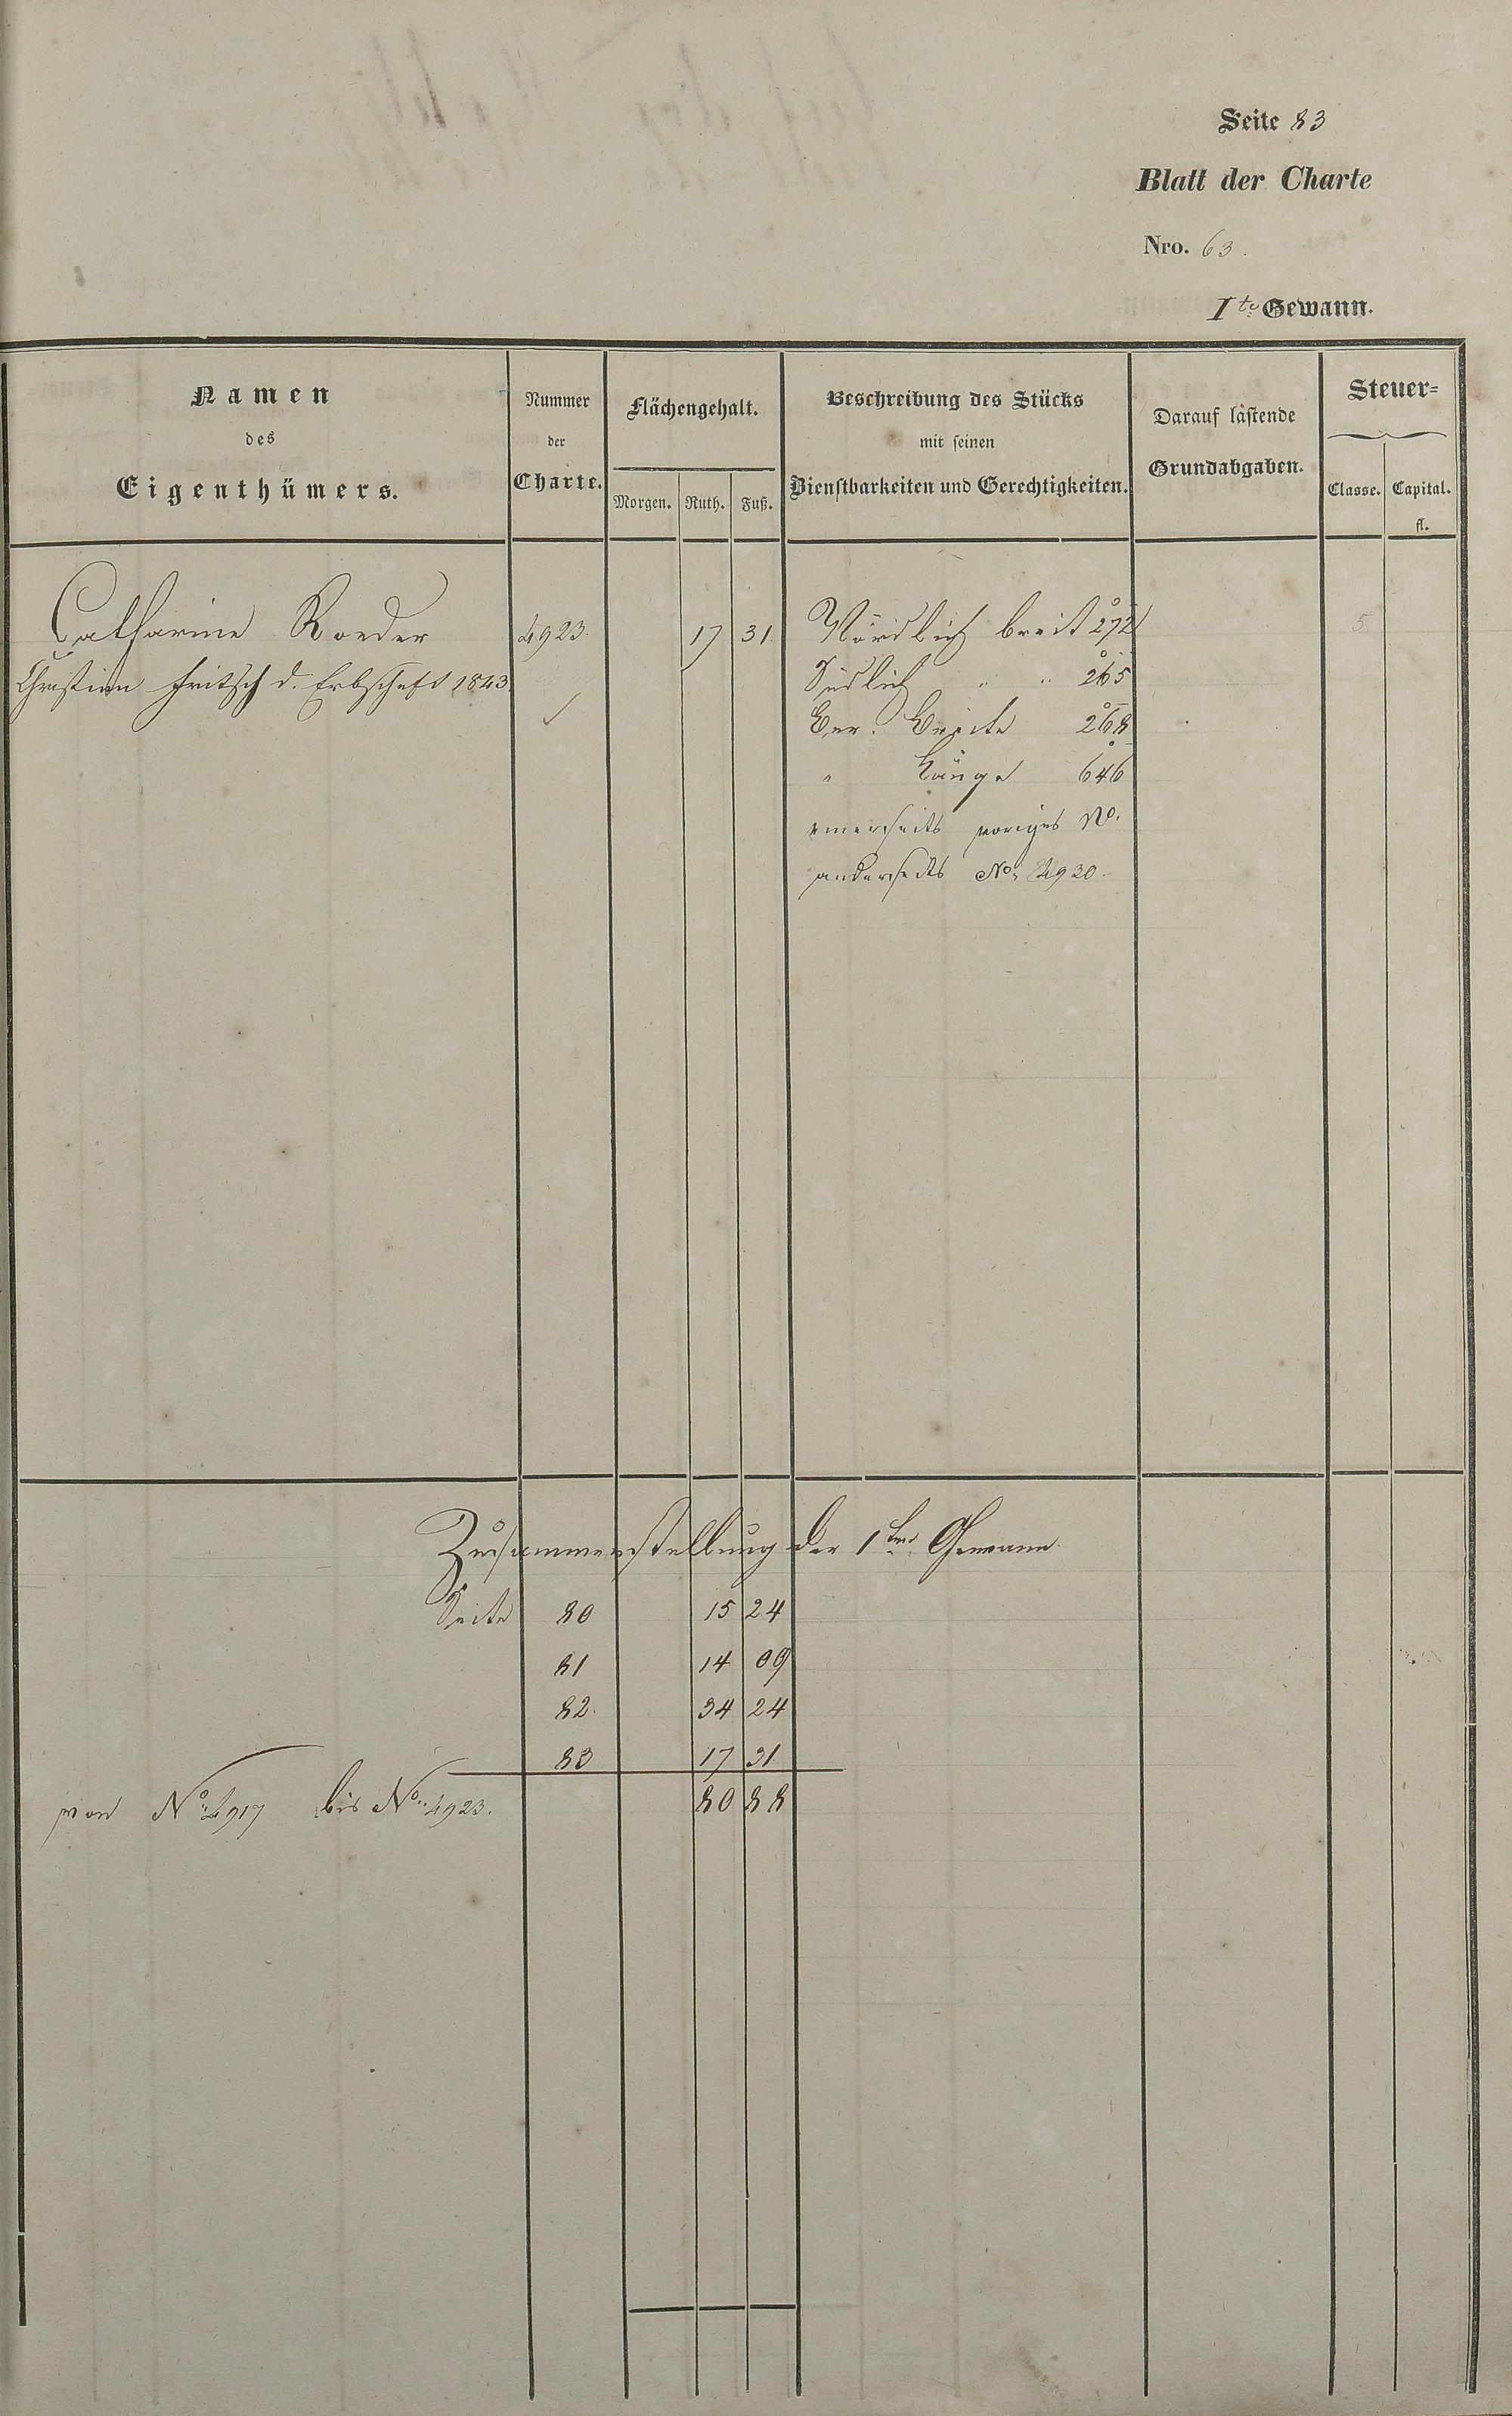 Seite 83
Blatt der Charte
Nro. 63.
Ite Gewann.
Namen
des
Eigenthümers.
Nummer
der
Charte.
Flächengehalt.
Morgen. Ruth. Fuß.
Beschreibung des Stücks
mit seinen
Dienstbarkeiten und Gerechtigkeiten.
Darauf lastende
Grundabgaben.
Steuer=
Classe. Capital.
fl.
Catharine Roeder 4923. 17 31. Nördlich breit 272 5
Christian Fritsch d. Erbschaft 1843. Südlich " " 265
Ger. Breite 268
" Länge 646
einerseits voriges No.
anderseits No. 4920.
Zusammenstellung der 1ten Gewann.
Seite 80 15 24
81 14 09
82. 34 24
83 17 31.
von No. 4917 bis No. 4923. 80 88